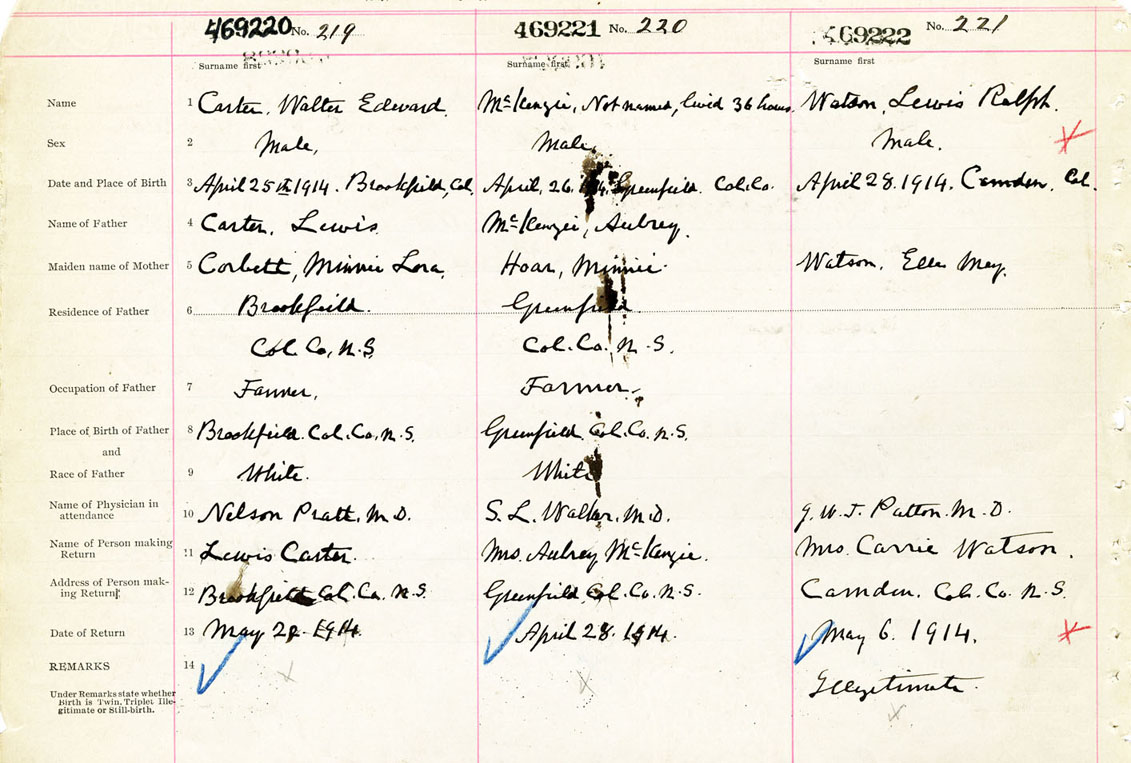 469220 No. 219 469221 No. 220 469222 No. 221
Surname first Surname first Surname first
Name 1 Carter, Walter Edward. McKenzie, Not named, lived 36 hours. Watson, Lewis Ralph.
Sex 2 Male, Male, Male.
Date and Place of Birth 3 April 25th 1914. Brookfield, Col. April, 26. Greenfield. Col. Co. April 28. 1914. Camden. Col.
Name of Father 4 Carter, Lewis McKenzie, Aubrey.
Maiden name of Mother 5 Corbett, Minnie Lora, Hoar, Minnie. Watson, Ella May.
Residence of Father 6 Brookfield. Greenfield.
Col. Co, N.S. Col. Co. N.S.
Occupation of Father 7 Farmer, Farmer
Place of Birth of Father 8 Brookfield. Col. Co. N.S. Greenfield. Col. Co. N.S.
and
Race of Father 9 White. White
Name of Physician in
attendance 10 Nelson Pratt, M.D. S. L. Walker, M.D. Patton. M.D.
Name of Person making
Return 11 Lewis Carter. Mrs. Aubrey McKenzie. Mrs. Carrie Watson.
Address of Person mak-
ing Return 12 Brookfield Col. Co. N.S. Greenfield, Col. Co. N.S. Camden. Col. Co. N.S.
Date of Return 13 May 1914. April 28. 1914. May 6. 1914.
REMARKS 14
Under Remarks state whether
Birth is Twin, Triplet Ille-
gitimate or Still-birth.
Illegitimate.